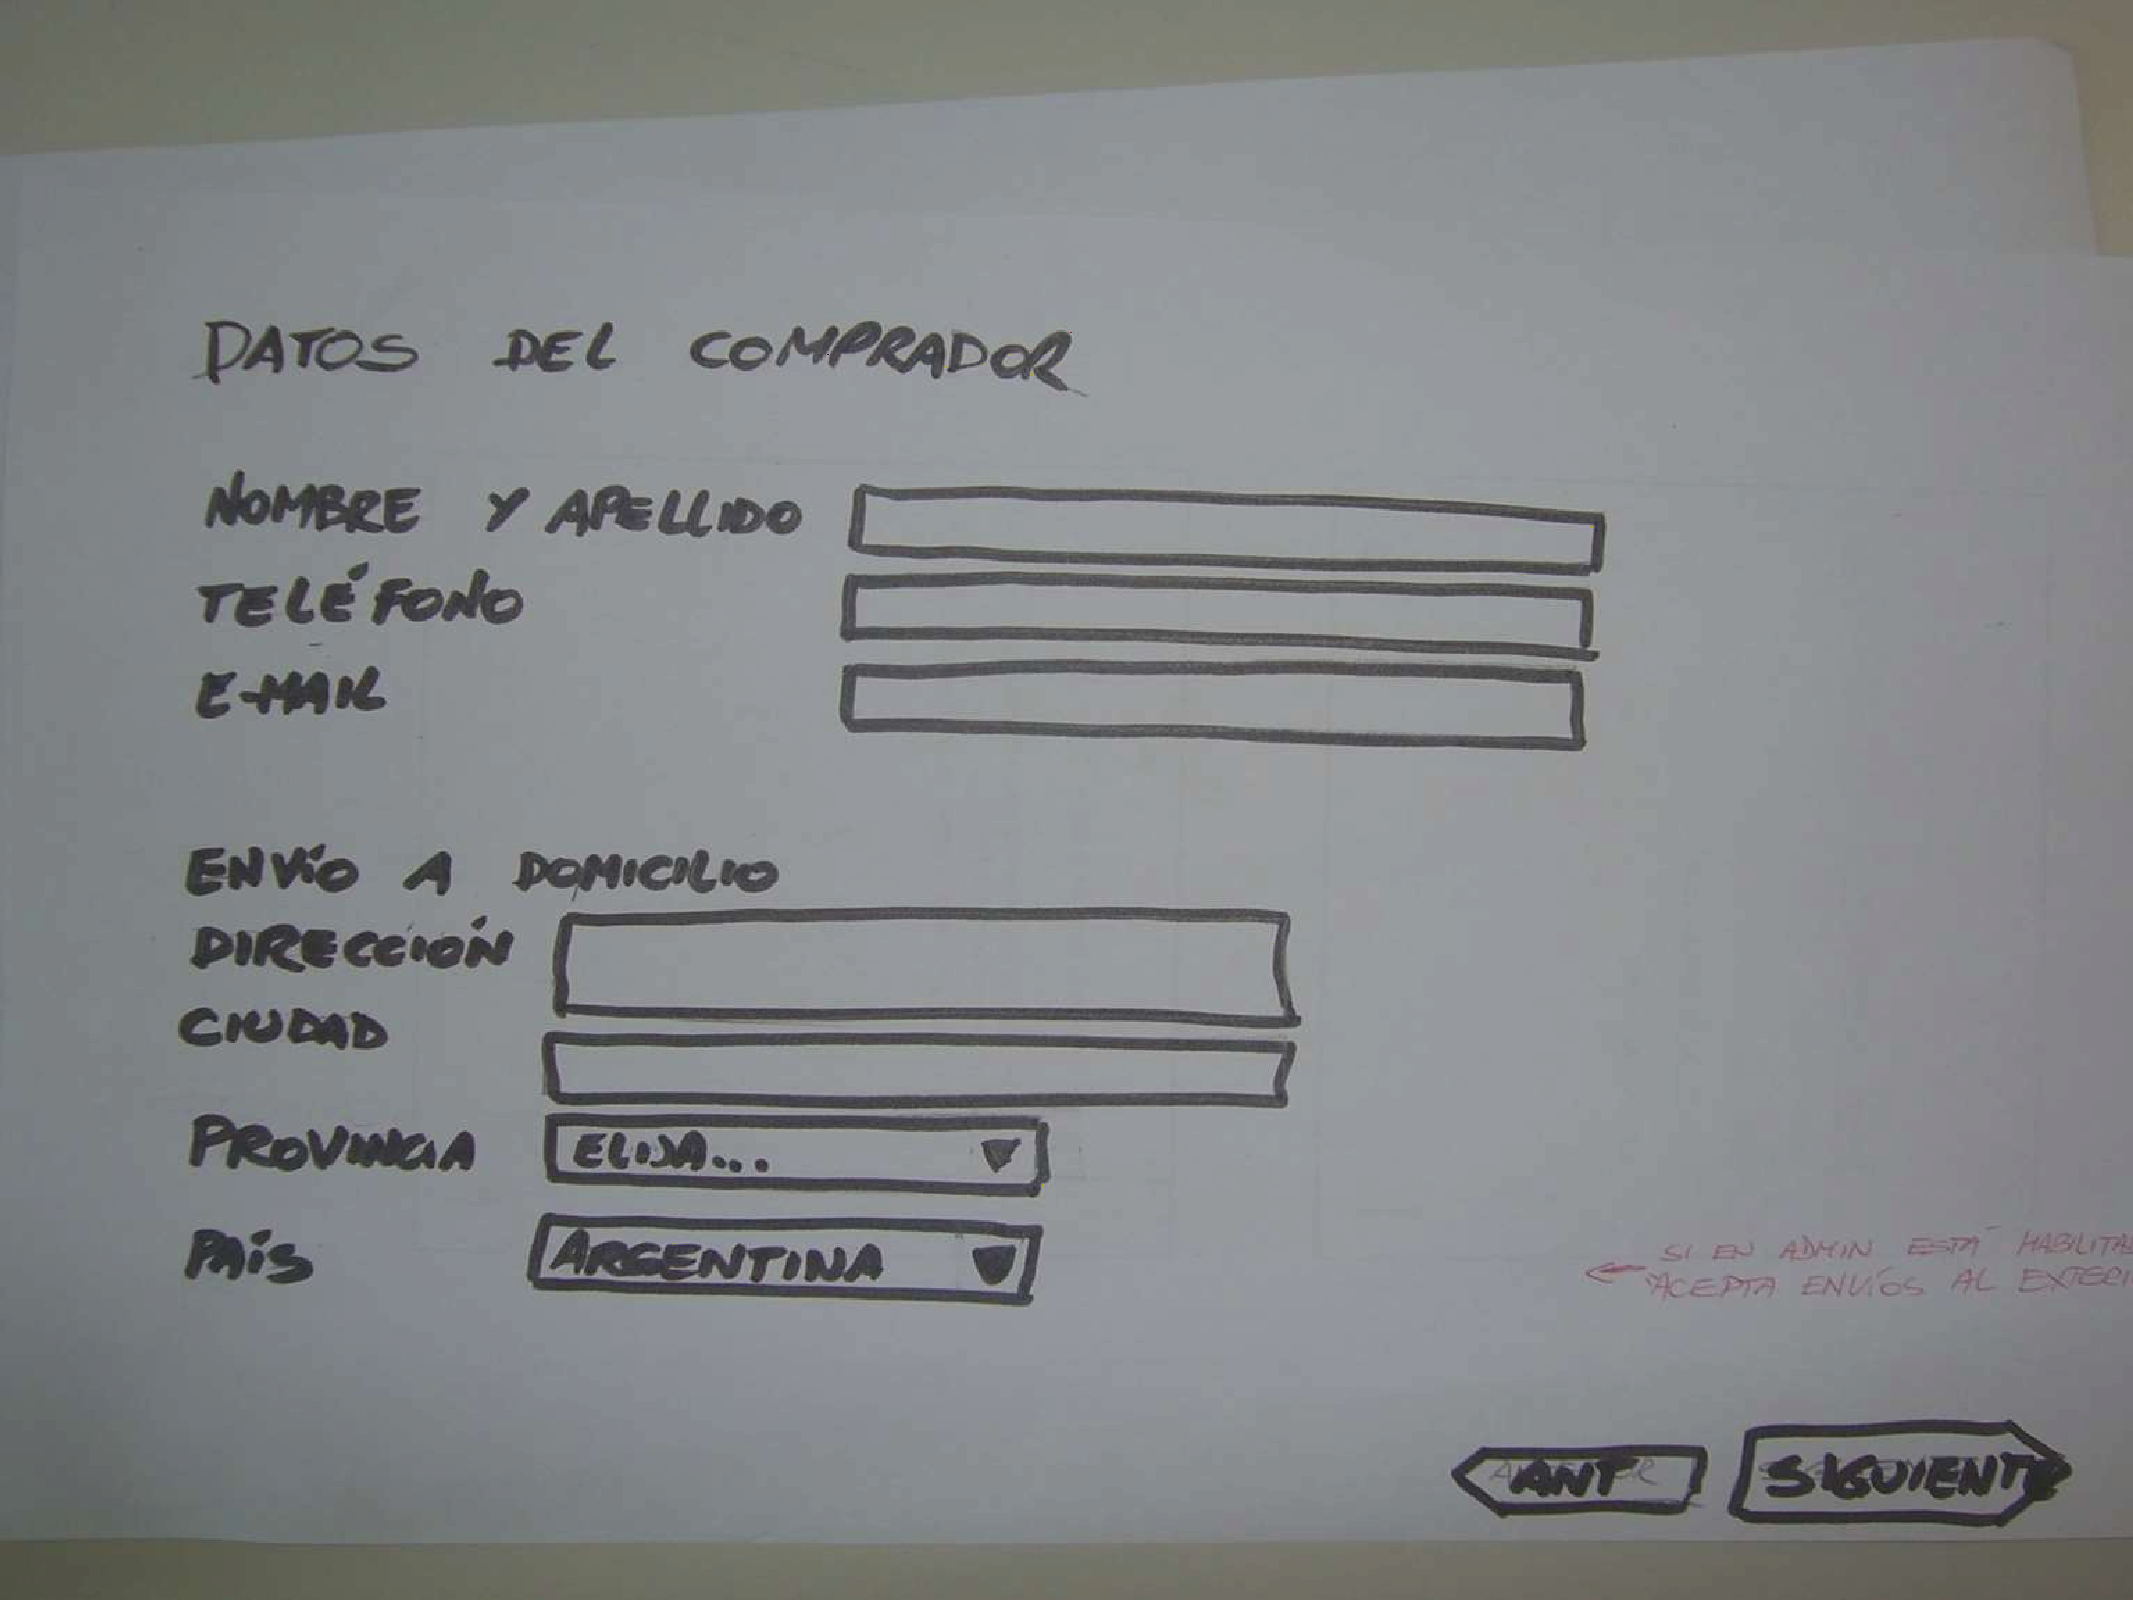 DATOS DEL COMPRADOR
NOMBRE Y APELLIDO
TELÉFONO
E-MAIL
ENVÍO A DOMICILIO
DIRECCIÓN
CIUDAD
PROVINCIA ELIJA...
PAÍS ARGENTINA
SI EN ADMIN ESTÁ HABILITA
ACEPTA ENVÍOS AL EXTERI
ANT SIGUIENTE